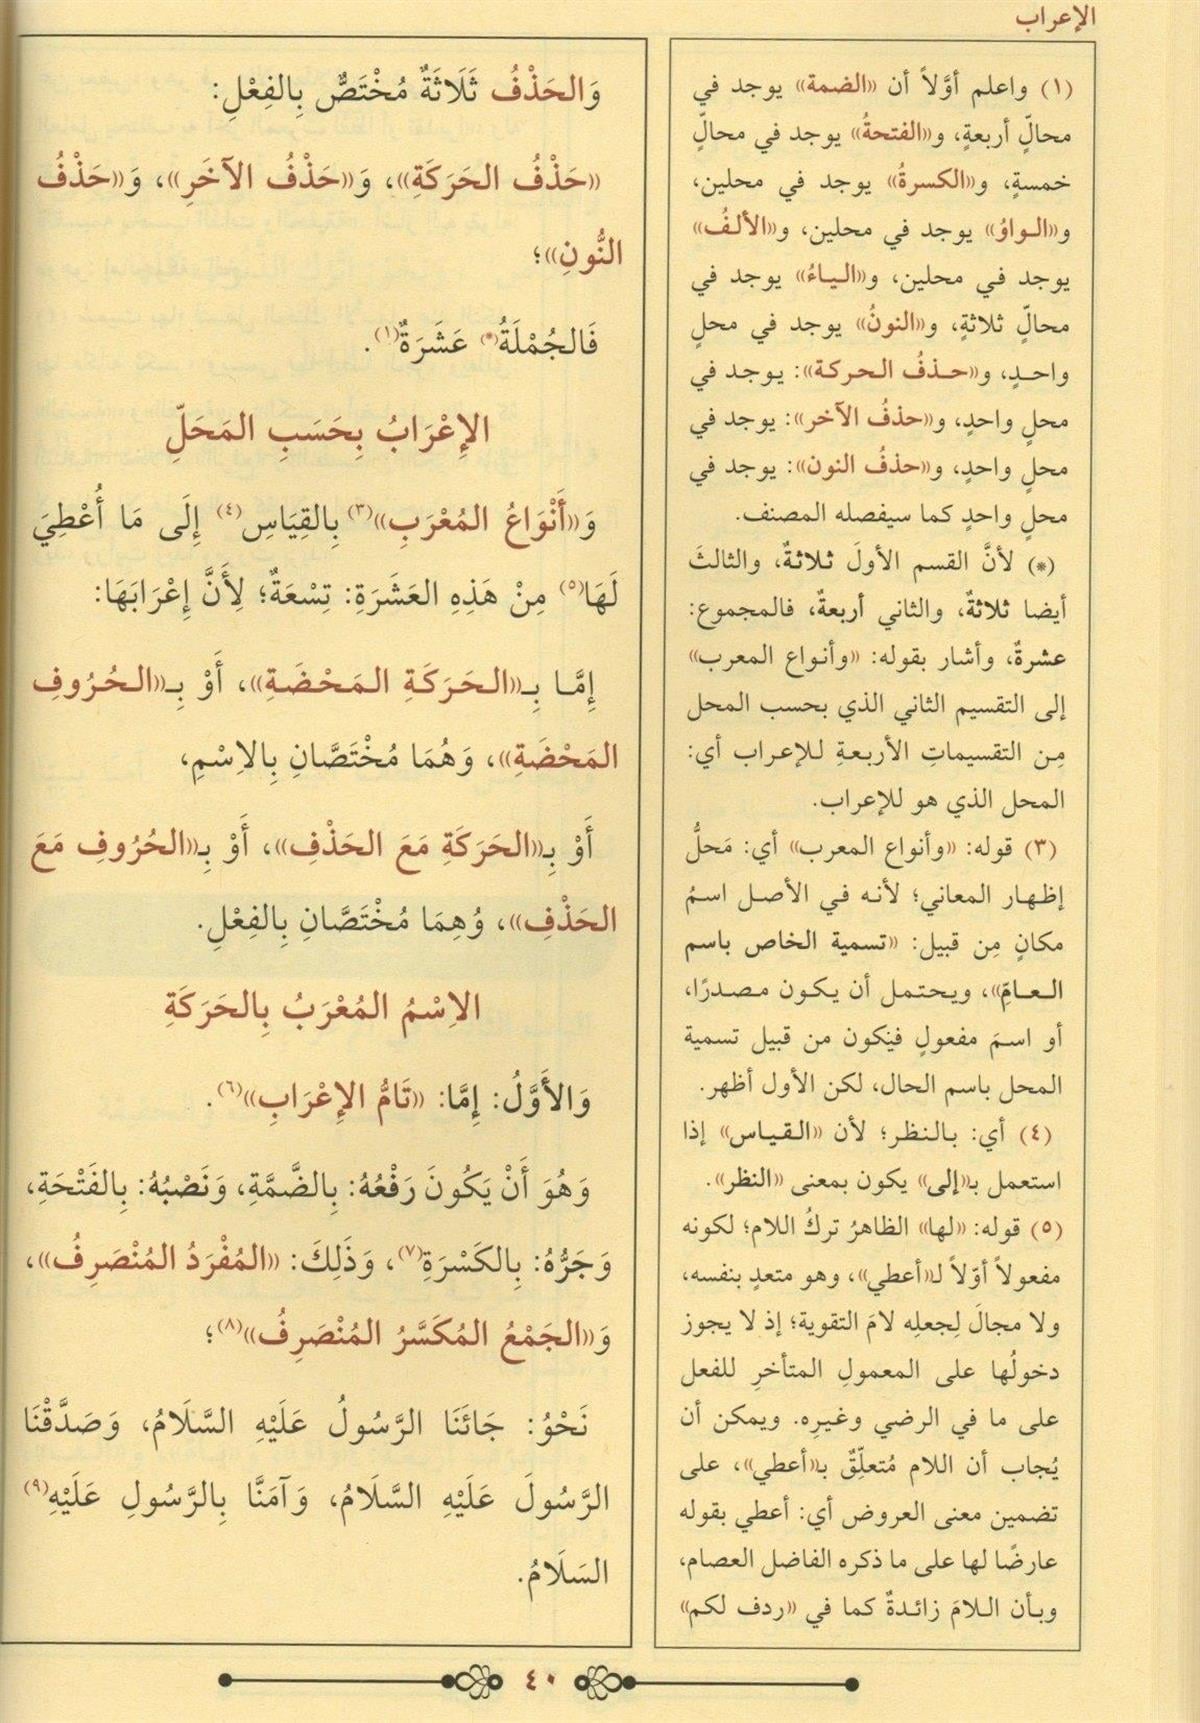 الإعراب
(١) واعلم أوَّلاً أن «الضمة» يوجد في
محالٍّ أربعةٍ، و«الفتحةُ» يوجد في محالٍّ
خمسةٍ، و«الكسرةُ» يوجد في محلين،
و«الواوُ» يوجد في محلين، و«الألفُ»
يوجد في محلين، و«الياءُ» يوجد في
محالٍّ ثلاثةٍ، و«النونُ» يوجد في محلٍ
واحدٍ، و«حذفُ الحركة»: يوجد في
محلٍ واحدٍ، و«حذفُ الآخر»: يوجد في
محلٍ واحدٍ، و«حذفُ النون»: يوجد في
محلٍ واحدٍ كما سيفصله المصنف.
(*) لأنَّ القسم الأولَ ثلاثةٌ، والثالثَ
أيضا ثلاثةٌ، والثاني أربعةٌ، فالمجموع:
عشرةٌ، وأشار بقوله: «وأنواع المعرب»
إلى التقسيم الثاني الذي بحسب المحل
مِن التقسيماتِ الأربعةِ للإعراب أي:
المحل الذي هو للإعراب.
(٣) قوله: «وأنواع المعرب» أي: مَحلُّ
إظهار المعاني؛ لأنه في الأصل اسمُ
مكانٍ مِن قبيل: «تسمية الخاص باسم
العامِّ»، ويحتمل أن يكون مصدرًا،
أو اسمَ مفعولٍ فيَكون من قبيل تسمية
المحل باسم الحال، لكن الأول أظهر.
(٤) أي: بالنظر؛ لأن «القياس» إذا
استعمل بـ«إلى» يكون بمعنى «النظر».
(٥) قوله: «لها» الظاهرُ تركُ اللام؛ لكونه
مفعولاً أوّلاً لـ«أعطي»، وهو متعدٍ بنفسه،
ولا مجالَ لِجعلِه لامَ التقوية؛ إذ لا يجوز
دخولُها على المعمولِ المتأخرِ للفعل
على ما في الرضي وغيرِه. ويمكن أن
يُجاب أن اللام مُتعلِّقٌ بـ«أعطي»، على
تضمين معنى العروض أي: أعطي بقوله
عارضًا لها على ما ذكره الفاضل العصام،
وبأن اللامَ زائدةٌ كما في «ردف لكم»
وَالحَذْفُ ثَلَاثَةٌ مُخْتَصٌّ بِالفِعْلِ:
«حَذْفُ الحَرَكَةِ»، وَ«حَذْفُ الآخَرِ»، وَ«حَذْفُ
النُّونِ»؛
فَالجُمْلَةُ(*) عَشَرَةٌ(١).
الإِعْرَابُ بِحَسَبِ المَحَلِّ
وَ«أَنْوَاعُ المُعْرَبِ»(٣) بِالقِيَاسِ(٤) إِلَى مَا أُعْطِيَ
لَهَا(٥) مِنْ هَذِهِ العَشَرَةِ: تِسْعَةٌ؛ لِأَنَّ إِعْرَابَهَا:
إِمَّا بِـ«الحَرَكَةِ المَحْضَةِ»، أَوْ بِـ«الحُرُوفِ
المَحْضَةِ»، وَهُمَا مُخْتَصَّانِ بِالاِسْمِ،
أَوْ بِـ«الحَرَكَةِ مَعَ الحَذْفِ»، أَوْ بِـ«الحُرُوفِ مَعَ
الحَذْفِ»، وُهِمَا مُخْتَصَّانِ بِالفِعْلِ.
الاِسْمُ المُعْرَبُ بِالحَرَكَةِ
وَالأَوَّلُ: إِمَّا: «تَامُّ الإِعْرَابِ»(٦).
وَهُوَ أَنْ يَكُونَ رَفْعُهُ: بِالضَّمَّةِ، وَنَصْبُهُ: بِالفَتْحَةِ،
وَجَرُّهُ: بِالكَسْرَةِ(٧)، وَذَلِكَ: «المُفْرَدُ المُنْصَرِفُ»،
وَ«الجَمْعُ المُكَسَّرُ المُنْصَرِفُ»(٨)؛
نَحْوُ: جَائَنَا الرَّسُولُ عَلَيْهِ السَّلَامُ، وَصَدَّقْنَا
الرَّسُولَ عَلَيْهِ السَّلَامُ، وَآمَنَّا بِالرَّسُولِ عَلَيْهِ(٩)
السَلَامُ.
٤٠